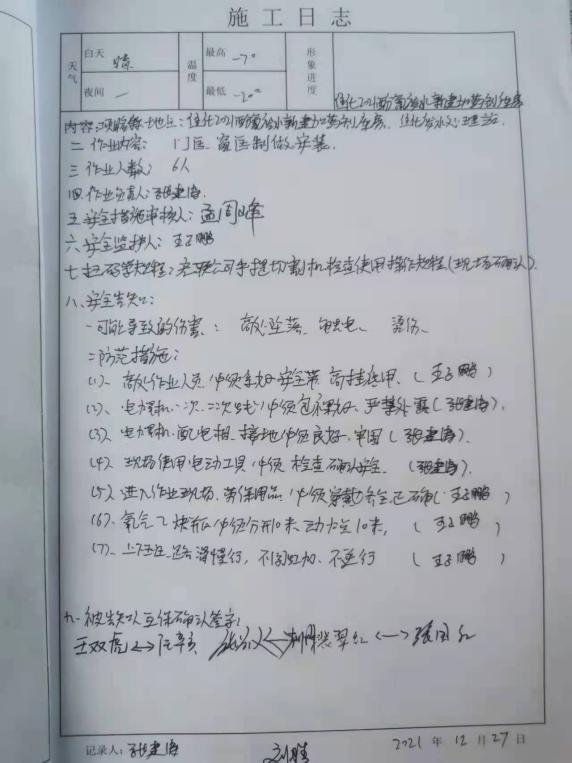 施工日志
天气 白天 晾 温度 最高 -7° 形象进度
夜间 — 最低 -20°
内容:
二 作业内容: 门区、窗区制做安装.
三 作业人数: 6人
四.作业负责人: 张建海
五.安全措施审核人: 孟周峰
六.安全监护人: 王子鹏
手提切割机 检查使用操作规程(现场确认).
八、安全告知:
一可能导致的伤害: 高处坠落、触电、 烫伤.
二防范措施:
(1)、高处作业人员必须系好安全带 高挂低用.(王子鹏)
(2)、电焊机一次、二次线必须包裹好、严禁外露(张建海).
(3)、电焊机、配电相、接地必须良好.牢固(张建海).
(4)、现场使用电动工具必须 检查确认安全. (张建海).
(5)、进入作业现场.劳保用品必须穿戴齐全正确(王子鹏)
(6)、氧气乙炔瓶必须分开10米、动火点10米, (王子鹏)
(7)、上下班 路滑慢行, 不 不逆行 (王子鹏)
九、被告知人互保确认签字;
王双虎
记录人: 张建海 2021 年 12 月 27 日